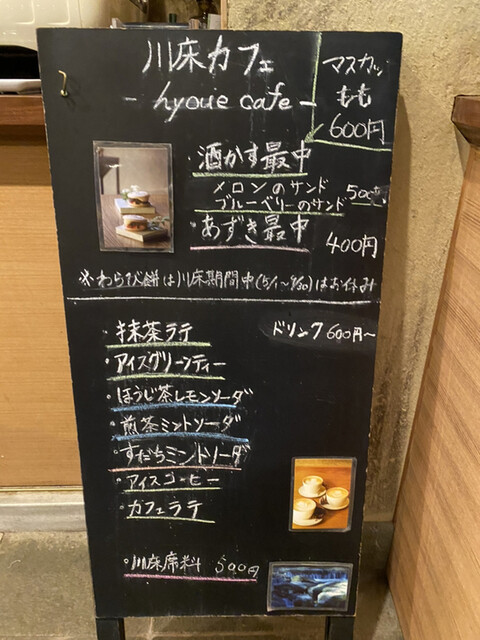 川床カフェ
- hyoue cafe -
マスカット
もも
600円
・酒かす最中
メロンのサンド
ブルーベリーのサンド 500円
・あずき最中 400円
※わらび餅は川床期間中(5/1〜9/30)はお休み
ドリンク600円〜
・抹茶ラテ
・アイスグリーンティー
・ほうじ茶レモンソーダ
・煎茶ミントソーダ
・すだちミントソーダ
・アイスコーヒー
・カフェラテ
・川床席料 500円